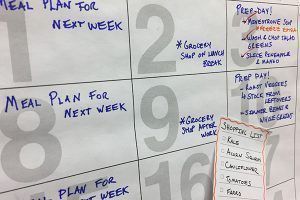 MEAL PLAN FOR
NEXT WEEK
1
* GROCERY
SHOP ON LUNCH
BREAK
2
PREP-DAY!
• MINESTRONE SOUP
* FREEZE EXTRA
• WASH & CHOP SALAD
GREENS
• SLICE PINEAPPLE
& MANGO
3
MEAL PLAN FOR
NEXT WEEK
8
* GROCERY
SHOP AFTER
WORK
9
PREP DAY!
• ROAST VEGGIES
& STOCK FROM
LEFTOVERS
• SIMMER BEANS &
WHOLE GRAINS
MEAL PLAN FOR
NEXT WEEK
16
SHOPPING LIST
KALE
ACORN SQUASH
CAULIFLOWER
TOMATOES
FARRO